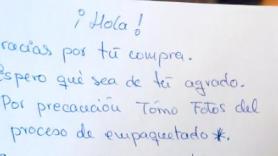 ¡Hola!
racias por tú compra.
spero qué sea de tú agrado.
Por precaución Tómo Fotos del
proceso de empaquetado*.